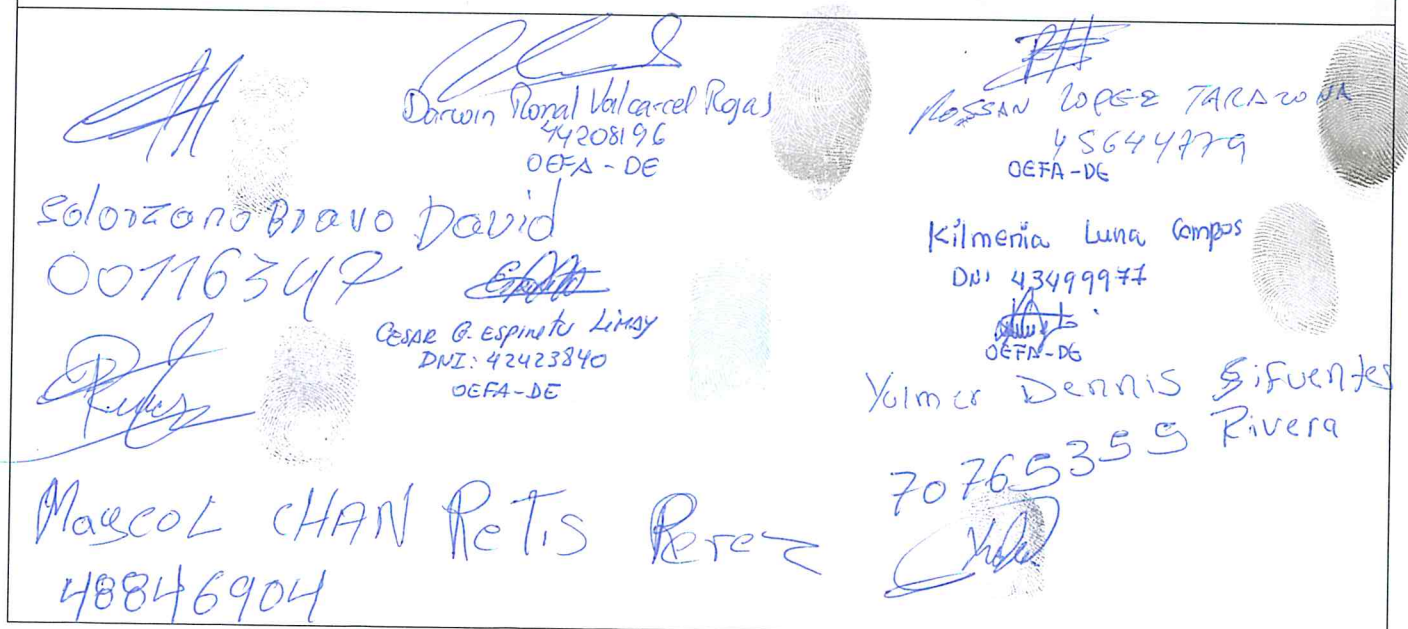 Darwin Ronal Valcarcel Rojas
44208196
OEFA - DE
ROSSAN LOPEZ TARAZONA
45644779
OEFA-DE
Solorzano Bravo David
00116347
Kilmenia Luna Campos
DNI 43499977
OEFA-DE
CESAR G. ESPINETU LIMAY
DNI: 42423840
OEFA-DE
Yulmer Dennis Sifuentes
Rivera
70765359
Maycol CHAN Retis Perez
48846904